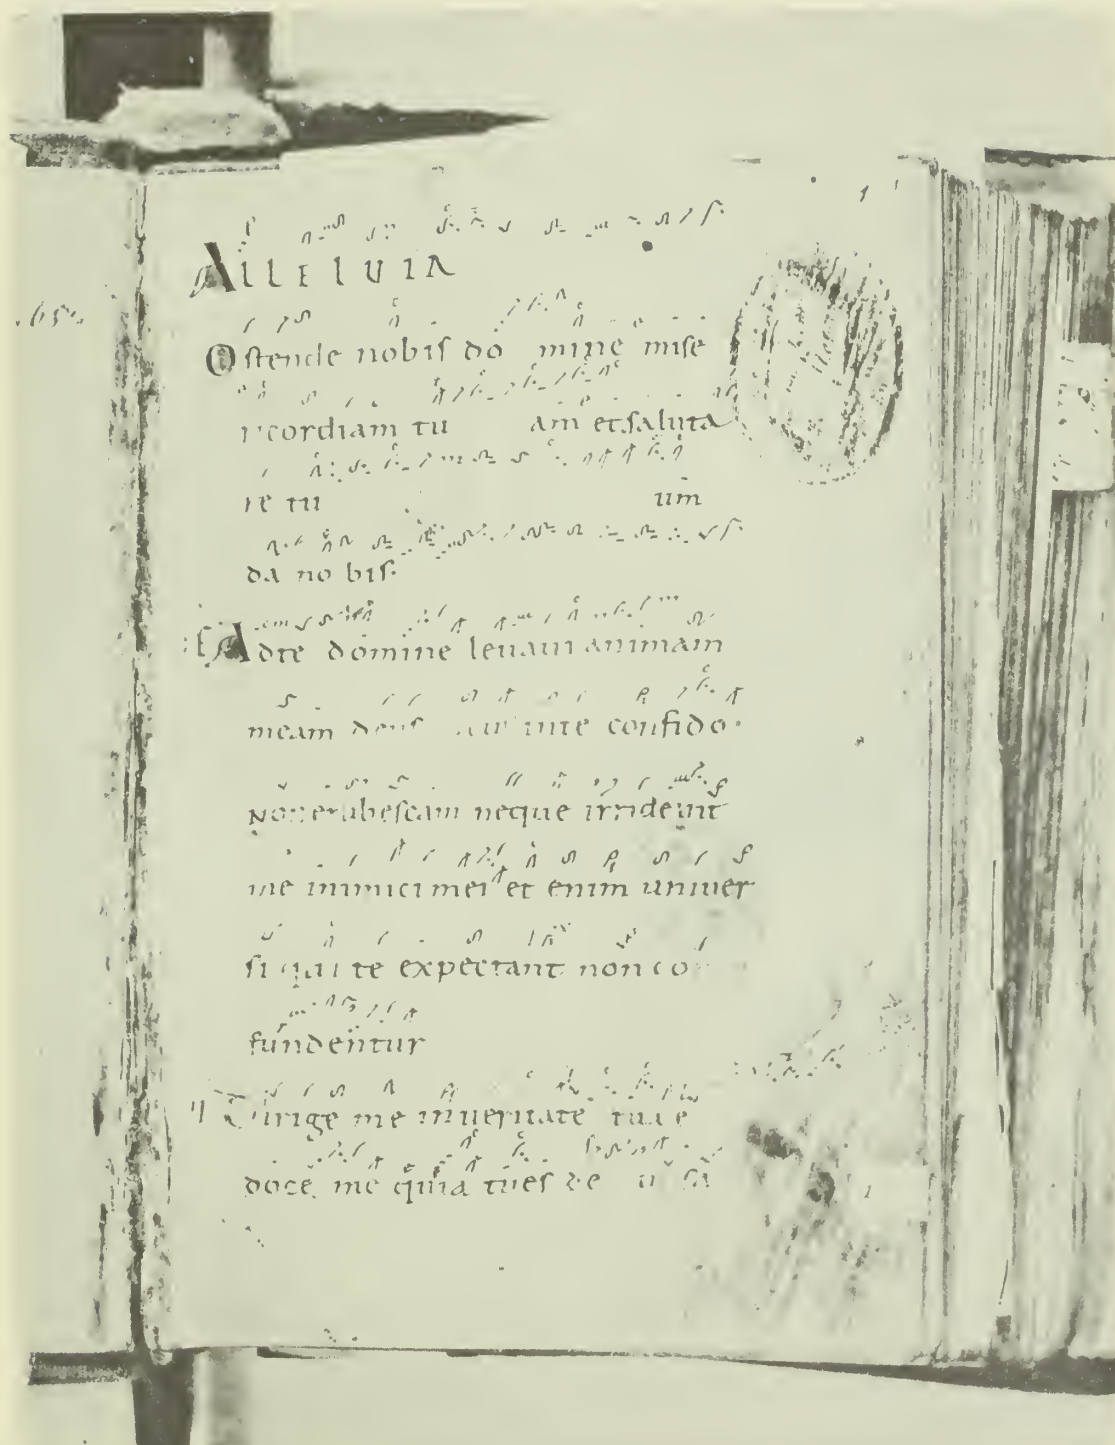 Alleluia
.65.
Ostende nobis do mine mise
ricordiam tu am et saluta
re tu um
da no bis.
Adte domine levavi animam
meam deus inte confido.
Non erubescam neque irrideant
me inimici mei et enim univer
si qui te expectant non co
fundentur
Dirige me inveritate tua e
doce me quia tues de u sa